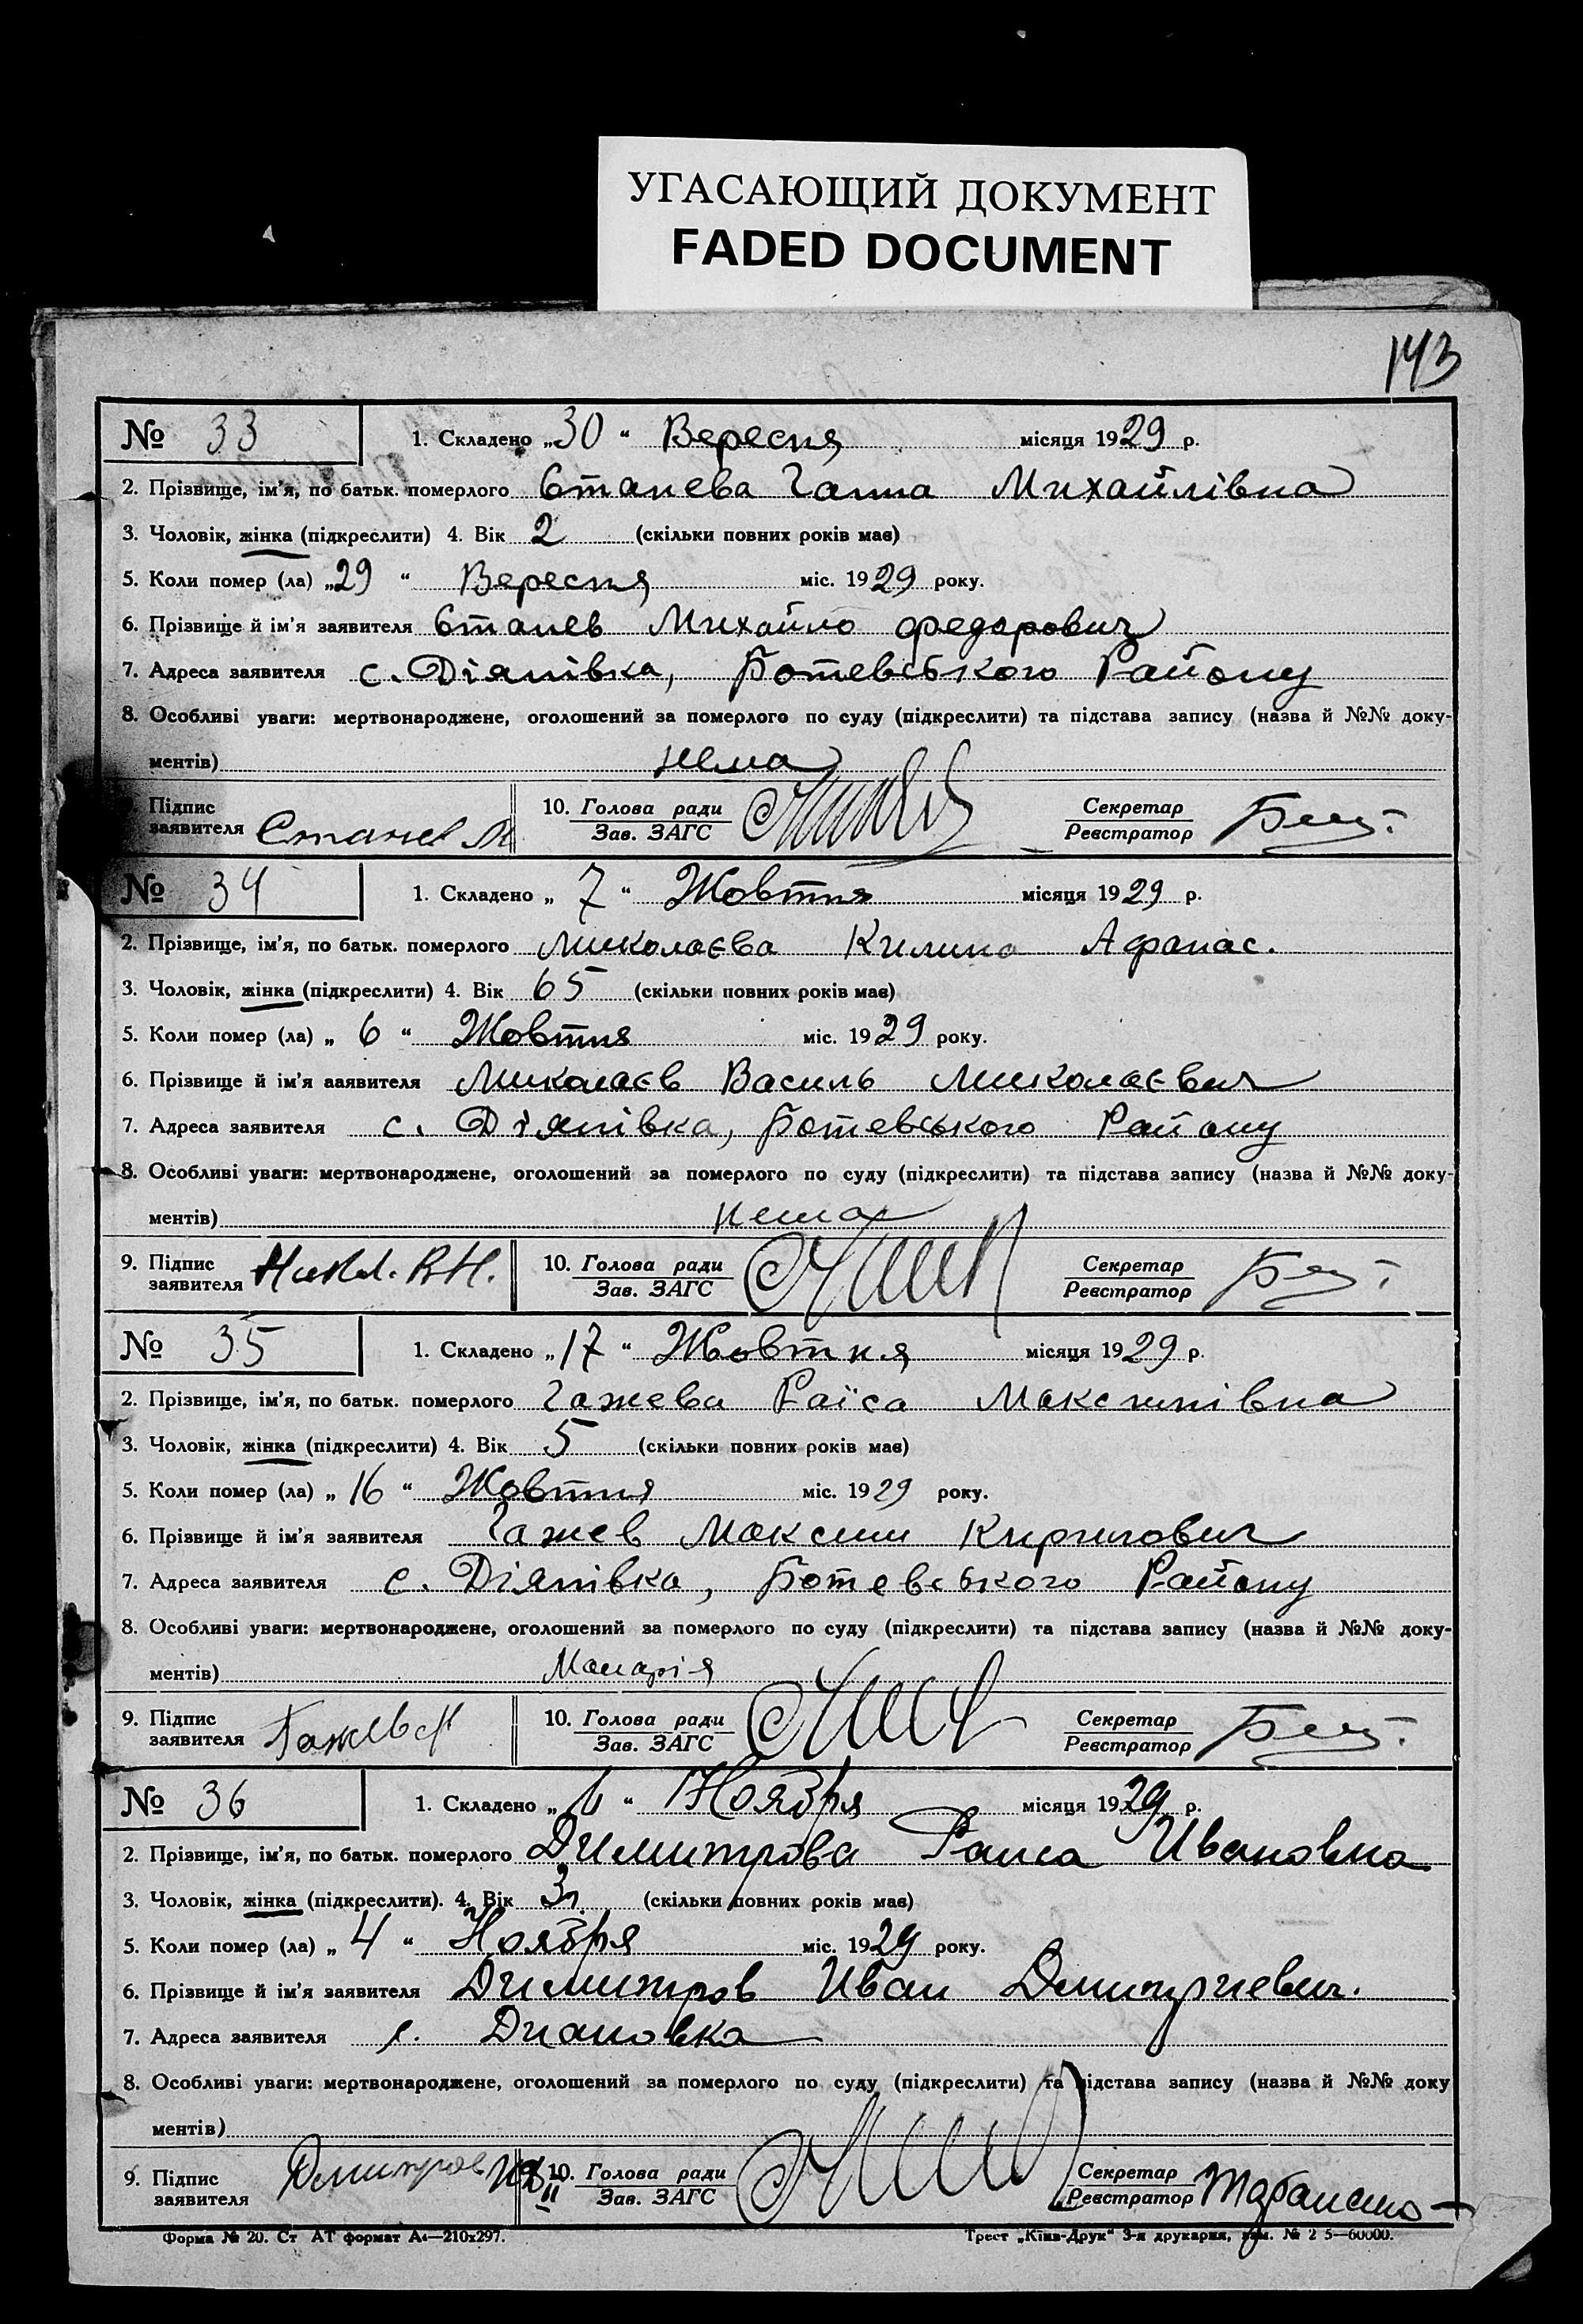 УГАСАЮЩИЙ ДОКУМЕНТ
FADED DOCUMENT
143
№ 33 1. Складено „30“ Вересня місяця 1929 р.
2. Прізвище, ім'я, по батьк. померлого Станева Ганна Михайлівна
3. Чоловік, жінка (підкреслити) 4. Вік 2 (скільки повних років має)
5. Коли помер (ла) „29“ Вересня міс. 1929 року.
6. Прізвище й ім'я заявителя Станев Михайло Федорович
7. Адреса заявителя с. Діянівка, Ботевського Району
8. Особливі уваги: мертвонароджене, оголошений за померлого по суду (підкреслити) та підстава запису (назва й №№ доку-
ментів) нема
Підпис заявителя Станев М 10. Голова ради Зав. ЗАГС Секретар Реєстратор
№ 34 1. Складено „7“ Жовтня місяця 1929 р.
2. Прізвище, ім'я, по батьк. померлого Миколаєва Килина Афанас.
3. Чоловік, жінка (підкреслити) 4. Вік 65 (скільки повних років має)
5. Коли помер (ла) „6“ Жовтня міс. 1929 року.
6. Прізвище й ім'я заявителя Миколаєв Василь Миколаєвич
7. Адреса заявителя с. Діянівка, Ботевського Району
8. Особливі уваги: мертвонароджене, оголошений за померлого по суду (підкреслити) та підстава запису (назва й №№ доку-
ментів) нема
9. Підпис заявителя Никол. В.Н. 10. Голова ради Зав. ЗАГС Секретар Реєстратор
№ 35 1. Складено „17“ Жовтня місяця 1929 р.
2. Прізвище, ім'я, по батьк. померлого Гажева Раїса Максимівна
3. Чоловік, жінка (підкреслити) 4. Вік 5 (скільки повних років має)
5. Коли помер (ла) „16“ Жовтня міс. 1929 року.
6. Прізвище й ім'я заявителя Гажев Максим Кирилович
7. Адреса заявителя с. Діянівка, Ботевського Району
8. Особливі уваги: мертвонароджене, оголошений за померлого по суду (підкреслити) та підстава запису (назва й №№ доку-
ментів) Малярія
9. Підпис заявителя Гажев 10. Голова ради Зав. ЗАГС Секретар Реєстратор
№ 36 1. Складено „6“ Ноября місяця 1929 р.
2. Прізвище, ім'я, по батьк. померлого Димитрова Раиса Ивановна
3. Чоловік, жінка (підкреслити). 4. Вік 3 (скільки повних років має)
5. Коли помер (ла) „4“ Ноября міс. 1929 року.
6. Прізвище й ім'я заявителя Димитров Иван Дмитриевич.
7. Адреса заявителя с. Диановка
8. Особливі уваги: мертвонароджене, оголошений за померлого по суду (підкреслити) та підстава запису (назва й №№ доку
ментів)
9. Підпис заявителя Димитров 10. Голова ради Зав. ЗАГС Секретар Реєстратор
Форма № 20. Ст АТ формат А4—210х297. Трест „Київ-Друк“ 3-я друкарня, зам. № 2 5—60000.